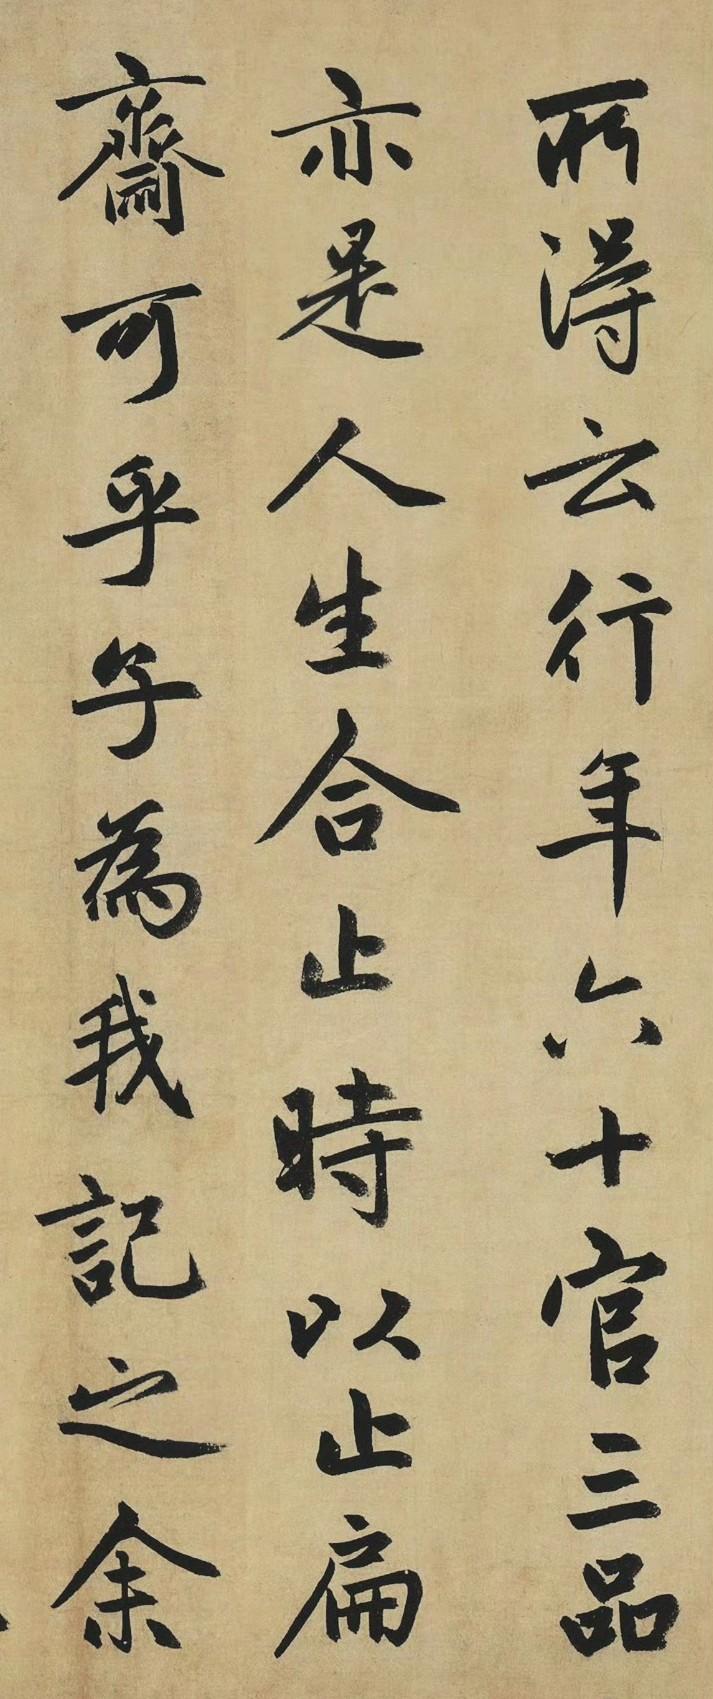 所得云行年六十官三品
亦是人生合止時以止扁
齋可乎子為我記之余